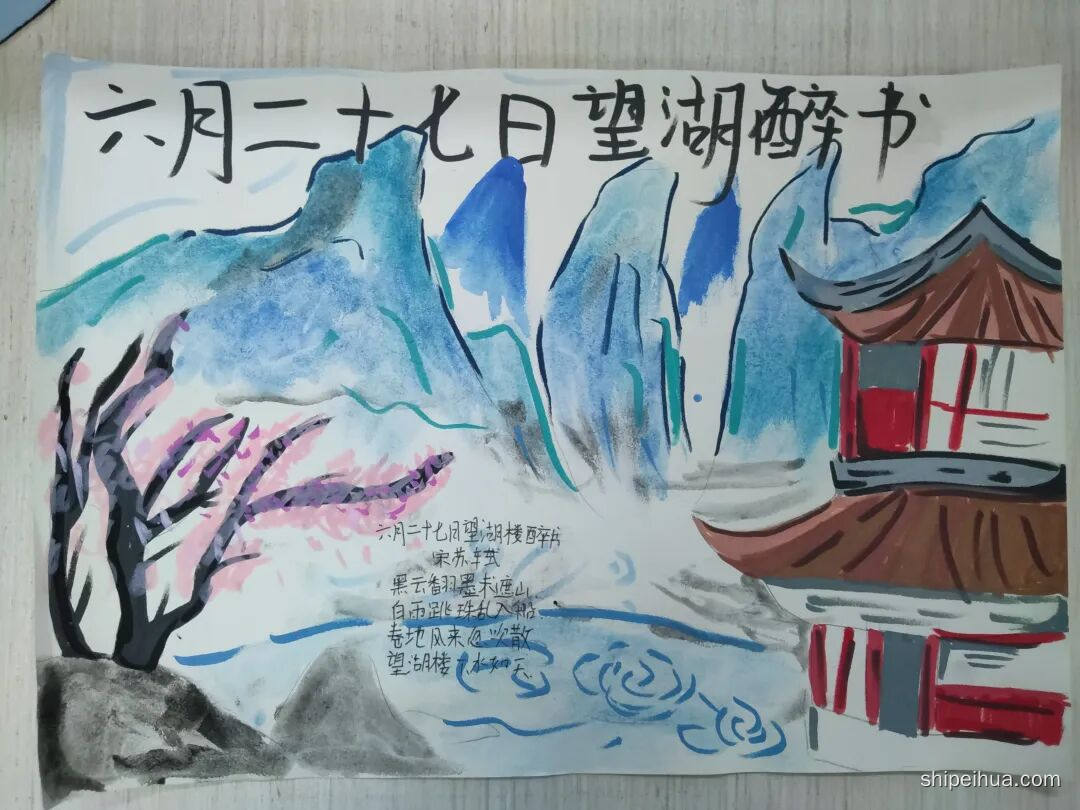 六月二十七日望湖醉书
六月二十七日望湖楼醉书
宋苏轼
黑云翻墨未遮山
白雨跳珠乱入船
卷地风来忽吹散
望湖楼下水如天
shipeihua.com